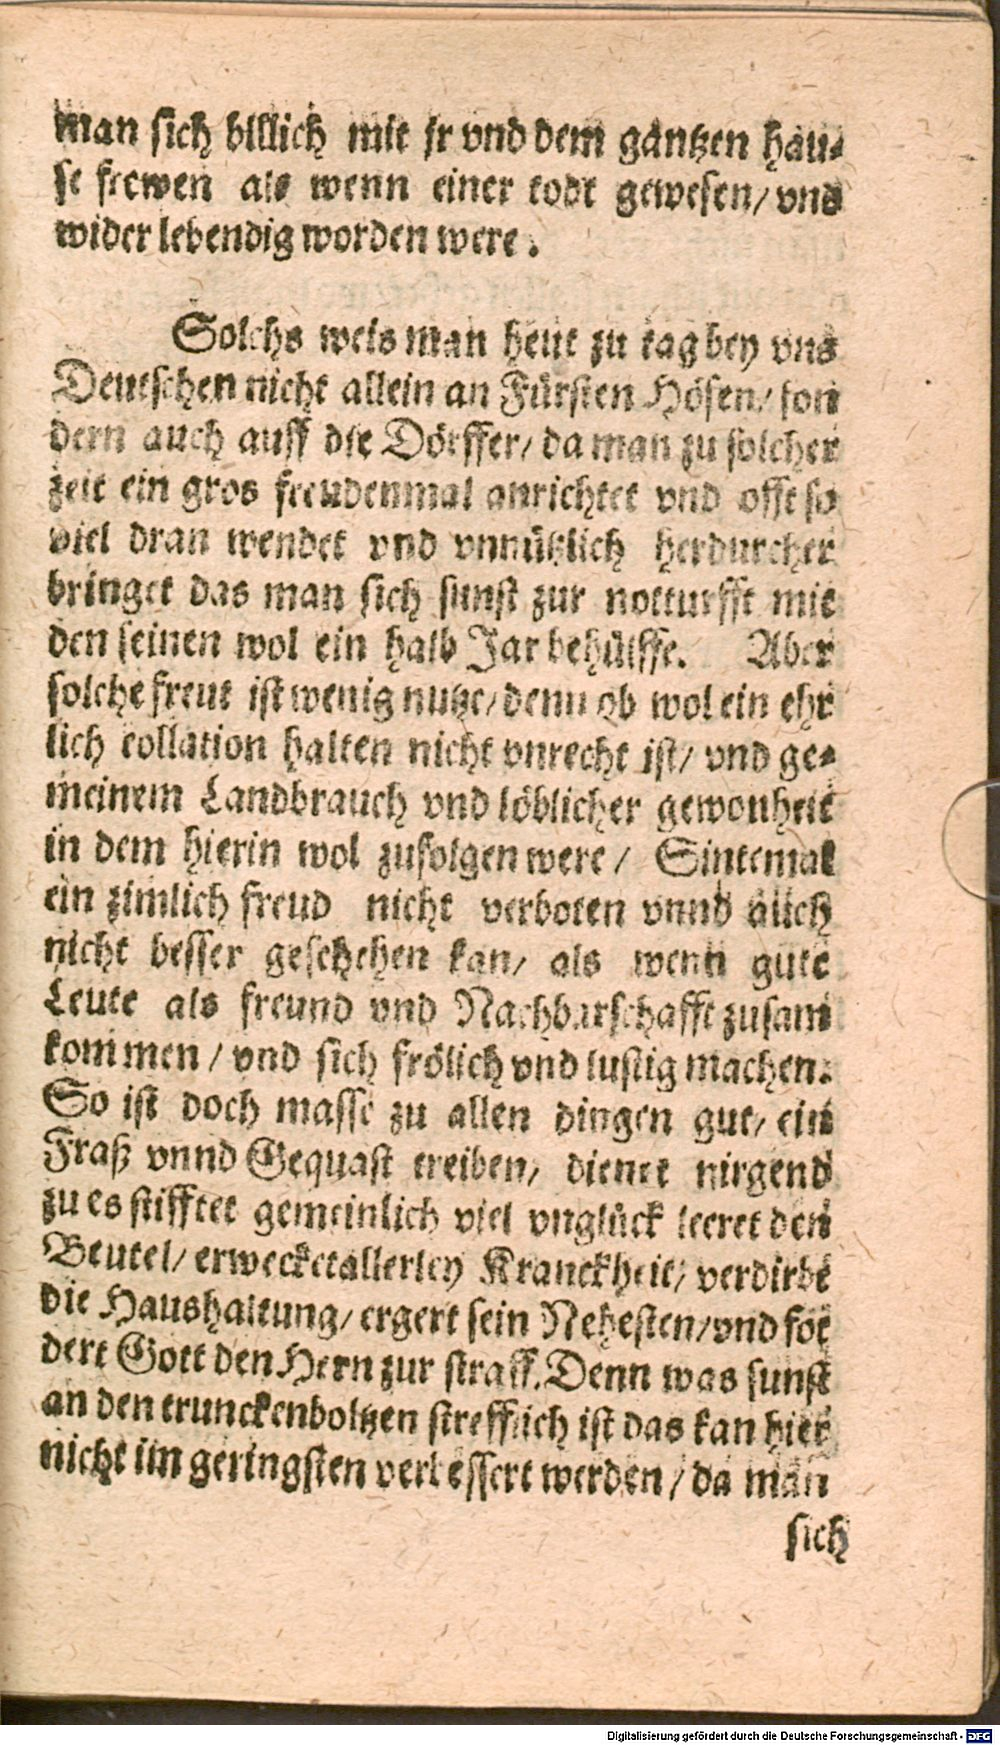 man sich billich mit jr vnd dem gantzen hau⸗
se frewen als wenn einer todt gewesen/ vnd
wider lebendig worden were.
Solchs weis man heut zu tag bey vns
Deutschen nicht allein an Fürsten Höfen/ son
dern auch auff die Dörffer/ da man zu solcher
zeit ein gros freudenmal anrichtet vnd offt so
viel dran wendet vnd vnnützlich herdurcher
bringet das man sich sunst zur notturfft mit
den seinen wol ein halb Jar behülffe. Aber
solche freut ist wenig nutze/ denn ob wol ein ehr
lich collation halten nicht vnrecht ist/ vnd ge⸗
meinem Landbrauch vnd löblicher gewonheit
in dem hierin wol zufolgen were/ Sintemal
ein zimlich freud nicht verboten vnnd auch
nicht besser geschehen kan/ als wenn gute
Leute als freund vnd Nachbarschafft zusam
kommen/ vnd sich frölich vnd lustig machen.
So ist doch masse zu allen dingen gut/ ein
Fraß vnnd Gequast treiben/ dienet nirgend
zu es stifftet gemeinlich viel vnglück leeret den
Beutel/ erwecket allerley Kranckheit/ verdirbt
die Haushaltung/ ergert sein Nehesten/ vnd foͤ
dert Gott den Hern zur straff. Denn was sunst
an den trunckenboltzen strefflich ist das kan hier
nicht im geringsten verbessert werden/ da man
sich
Digitalisierung gefördert durch die Deutsche Forschungsgemeinschaft - DFG